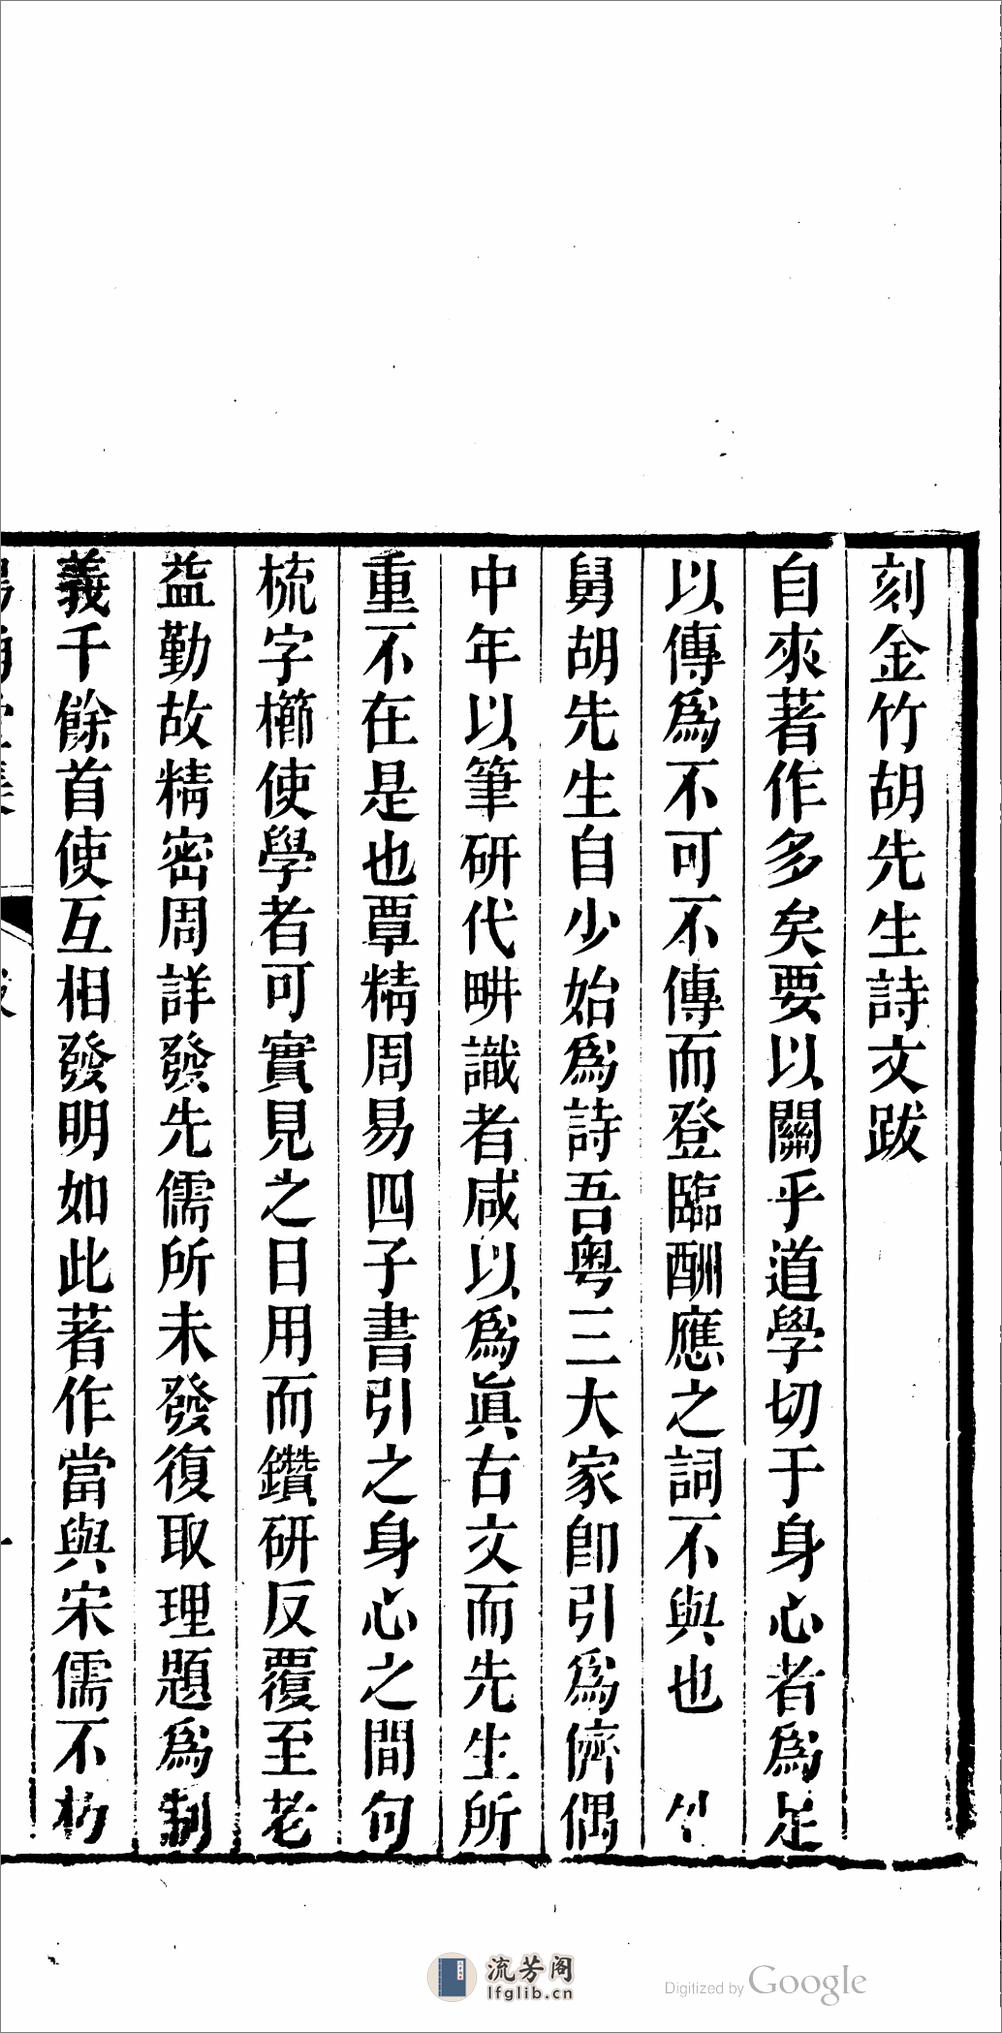 刻金竹胡先生詩文跋
自來著作多矣要以關乎道學切于身心者爲足
以傳爲不可不傳而登臨酬應之詞不與也
舅胡先生自少始爲詩吾粵三大家卽引爲儕偶
中年以筆研代畊識者咸以爲眞古文而先生所
重不在是也覃精周易四子書引之身心之間句
梳字櫛使學者可實見之日用而鑽研反覆至老
益勤故精密周詳發先儒所未發復取理題爲制
義千餘首使互相發明如此著作當與宋儒不朽
流芳阁
lfglib.cn
Digitized by Google